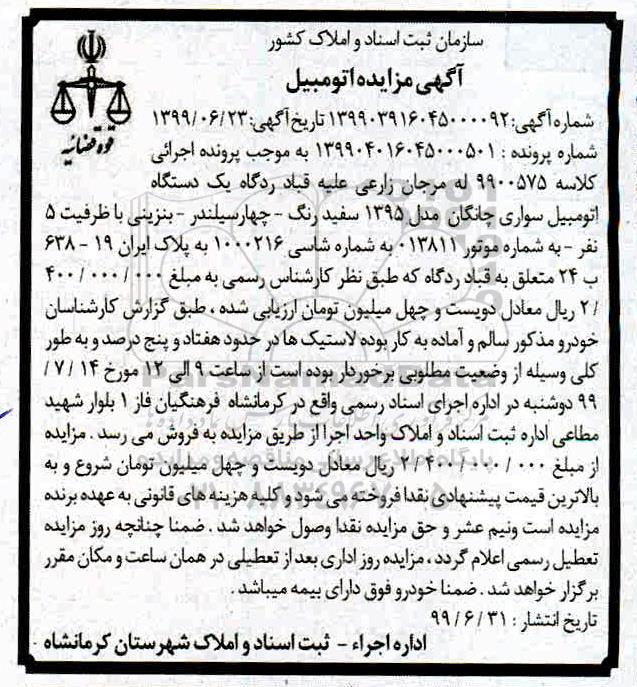 سازمان ثبت اسناد و املاک کشور
آگهی مزایده اتومبیل
قوه قضائیه
شماره آگهی: ۱۳۹۹۰۳۹۱۶۰۴۵۰۰۰۰۹۲ تاریخ آگهی: ۱۳۹۹/۰۶/۲۳
شماره پرونده : ۱۳۹۹۰۴۰۱۶۰۴۵۰۰۰۵۰۱ به موجب پرونده اجرائی
کلاسه ۹۹۰۰۵۷۵ له مرجان زارعی علیه قباد ردگاه یک دستگاه
اتومبیل سواری چانگان مدل ۱۳۹۵ سفید رنگ - چهارسیلندر - بنزینی با ظرفیت ۵
نفر - به شماره موتور ۰۱۳۸۱۱ به شماره شاسی ۱۰۰۰۲۱۶ به پلاک ایران ۱۹ - ۶۳۸
ب ۲۴ متعلق به قباد ردگاه که طبق نظر کارشناس رسمی به مبلغ ۴۰۰/۰۰۰/۰۰۰
/۲ ریال معادل دویست و چهل میلیون تومان ارزیابی شده ، طبق گزارش کارشناسان
خودرو مذکور سالم و آماده به کار بوده لاستیک ها در حدود هفتاد و پنج درصد و به طور
کلی وسیله از وضعیت مطلوبی برخوردار بوده است از ساعت ۹ الی ۱۲ مورخ ۱۴ /۷ /
۹۹ دوشنبه در اداره اجرای اسناد رسمی واقع در کرمانشاه فرهنگیان فاز ۱ بلوار شهید
مطاعی اداره ثبت اسناد و املاک واحد اجرا از طریق مزایده به فروش می رسد . مزایده
از مبلغ ۲/۴۰۰/۰۰۰/۰۰۰ ریال معادل دویست و چهل میلیون تومان شروع و به
بالاترین قیمت پیشنهادی نقدا فروخته می شود و کلیه هزینه های قانونی به عهده برنده
مزایده است ونیم عشر و حق مزایده نقدا وصول خواهد شد . ضمنا چنانچه روز مزایده
تعطیل رسمی اعلام گردد ، مزایده روز اداری بعد از تعطیلی در همان ساعت و مکان مقرر
برگزار خواهد شد . ضمنا خودرو فوق دارای بیمه میباشد .
تاریخ انتشار : ۹۹/۶/۳۱
اداره اجراء - ثبت اسناد و املاک شهرستان کرمانشاه .